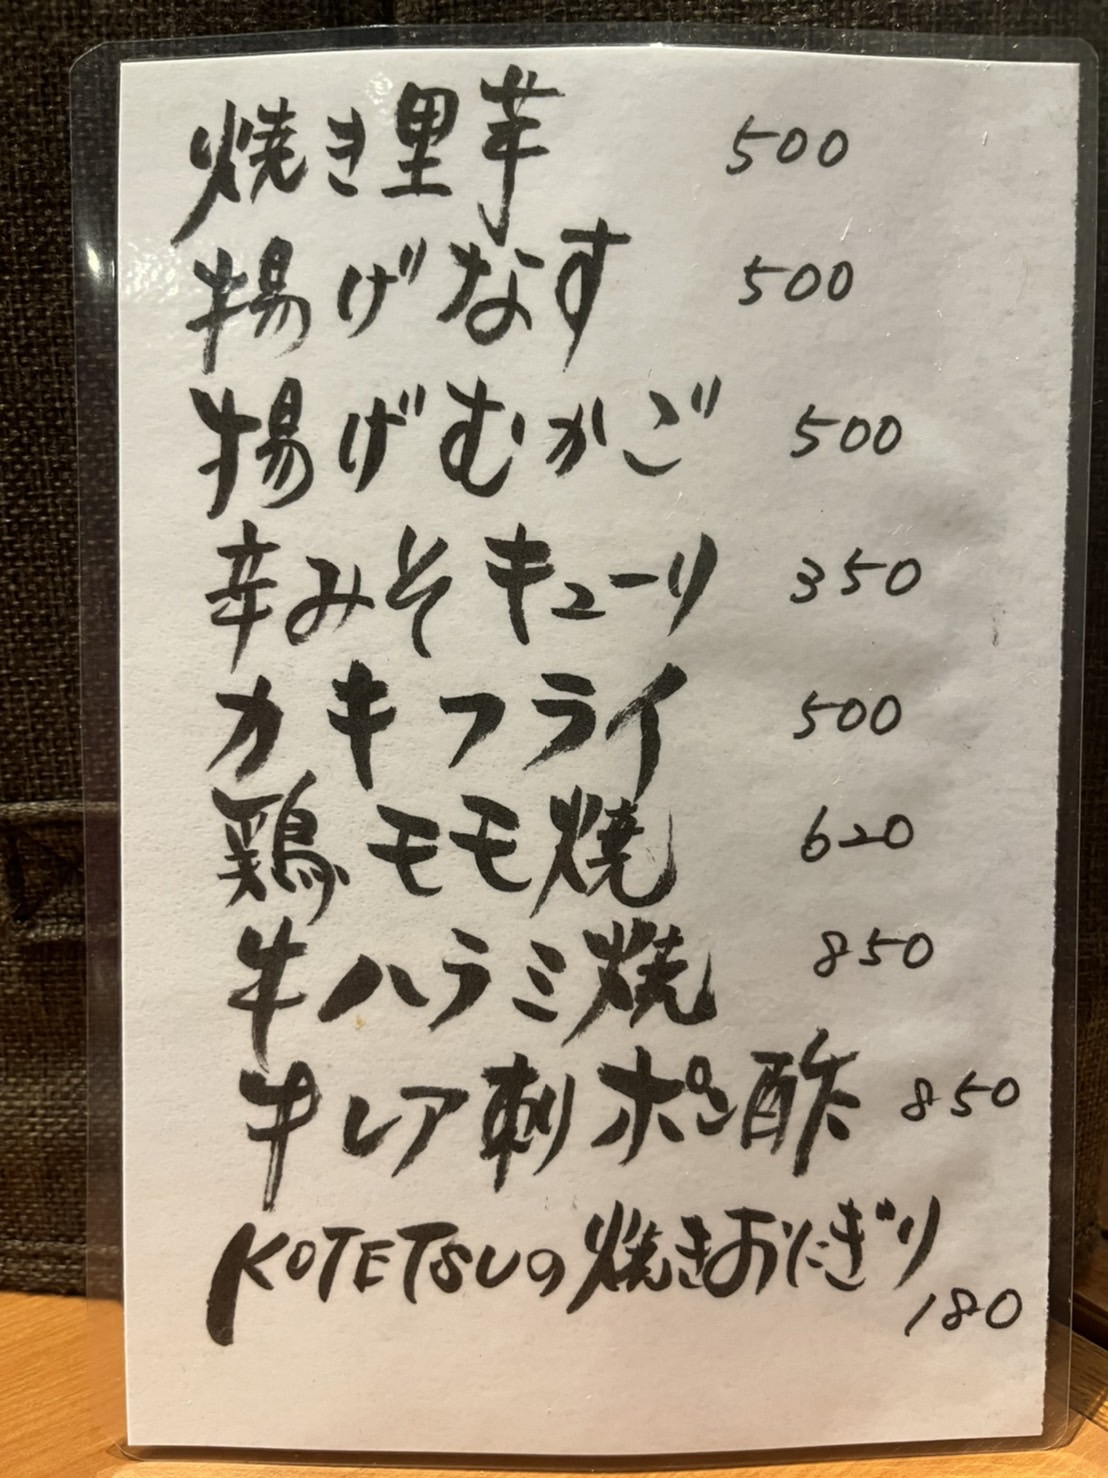 焼き里芋 500
揚げなす 500
揚げむかご 500
辛みそキューリ 350
カキフライ 500
鶏モモ焼 620
牛ハラミ焼 850
牛レア刺ポン酢 850
KOTETSUの焼きおにぎり
180